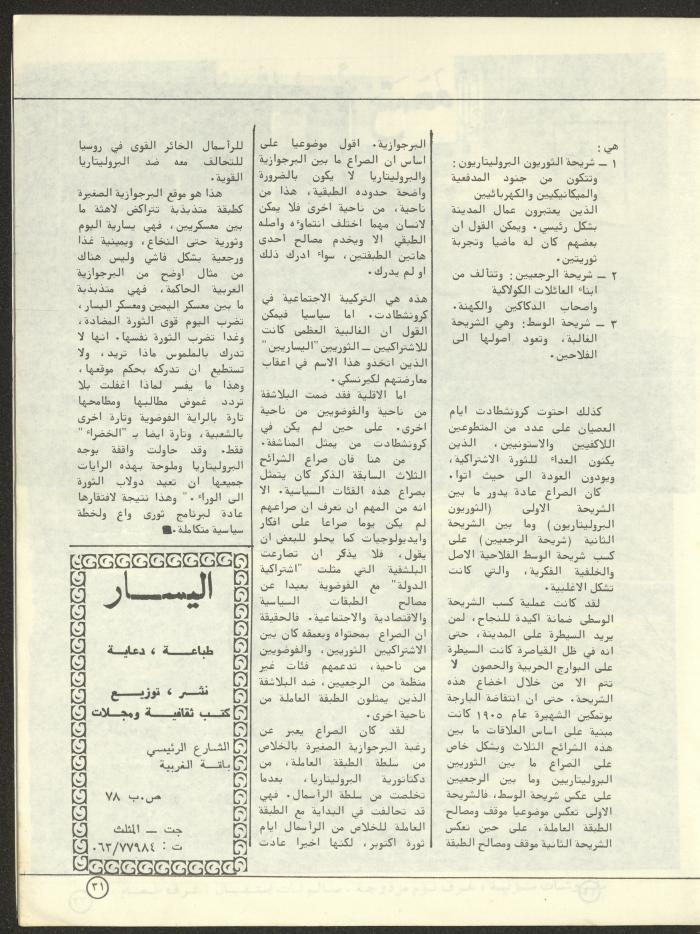 هي:
١ ــ شريحة الثوريون البروليتاريون:
وتتكون من جنود المدفعية
والميكانيكيين والكهربائيين
الذين يعتبرون عمال المدينة
بشكل رئيسي. ويمكن القول ان
بعضهم كان له ماضيا وتجربة
ثوريتين.
٢ ــ شريحة الرجعيين: وتتألف من
ابناء العائلات الكولاكية
واصحاب الدكاكين والكهنة.
٣ ــ شريحة الوسط: وهي الشريحة
الغالبة، وتعود اصولها الى
الفلاحين.
كذلك احتوت كرونشطادت ايام
العصيان على عدد من المتطوعين
اللاكفيين والاستونيين، الذين
يكنون العداء للثورة الاشتراكية،
ويودون العودة الى حيث اتوا.
كان الصراع عادة يدور ما بين
الشريحة الاولى (الثوريون
البروليتاريون) وما بين الشريحة
الثانية (شريحة الرجعيين) على
كسب شريحة الوسط الفلاحية الاصل
والخلفية الفكرية، والتي كانت
تشكل الاغلبية.
لقد كانت عملية كسب الشريحة
الوسطى ضمانة اكيدة للنجاح، لمن
يريد السيطرة على المدينة، حتى
انه في ظل القياصرة كانت السيطرة
على البوارج الحربية والحصون لا
تتم الا من خلال اخضاع هذه
الشريحة. حتى ان انتفاضة البارجة
بوتمكين الشهيرة عام ١٩٠٥ كانت
مبنية على اساس العلاقات ما بين
هذه الشرائح الثلاث وبشكل خاص
على الصراع ما بين الثوريين
البروليتاريين وما بين الرجعيين
على عكس شريحة الوسط، فالشريحة
الاولى تعكس موضوعيا موقف ومصالح
الطبقة العاملة، على حين تعكس
الشريحة الثانية موقف ومصالح الطبقة
البرجوازية. اقول موضوعيا على
اساس ان الصراع ما بين البرجوازية
والبروليتاريا لا يكون بالضرورة
واضحة حدوده الطبقية، هذا من
ناحية، من ناحية اخرى فلا يمكن
لانسان مهما اختلف انتماوءه واصله
الطبقي الا ويخدم مصالح احدى
هاتين الطبقتين، سواء ادرك ذلك
او لم يدرك.
هذه هي التركيبة الاجتماعية في
كرونشطادت. اما سياسيا فيمكن
القول ان الغالبية العظمى كانت
للاشتراكيين ــ الثوريين "اليساريين"
الذين اتخذو هذا الاسم في اعقاب
معارضتهم لكيرنسكي.
اما الاقلية فقد ضمت البلاشفة
من ناحية والفوضويين من ناحية
اخرى. على حين لم يكن في
كرونشطادت من يمثل المناشفة.
من هنا فان صراع الشرائح
الثلاث السابقة الذكر كان يتمثل
بصراع هذه الفئات السياسية. الا
انه من المهم ان نعرف ان صراعهم
لم يكن يوما صراعا على افكار
وايديولوجيات كما يحلو للبعض ان
يقول، فلا يذكر ان تصارعت
البلشفية التي مثلت "اشتراكية
الدولة" مع الفوضوية بعيدا عن
مصالح الطبقات السياسية
والاقتصادية والاجتماعية. فالحقيقة
ان الصراع بمحتواه وبعمقه كان بين
الاشتراكيين الثوريين، والفوضويين
من ناحية، تدعمهم فئات غير
منظمة من الرجعيين، ضد البلاشفة
الذين يمثلون الطبقة العاملة من
ناحية اخرى.
لقد كان الصراع يعبر عن
رغبة البرجوازية الصغيرة بالخلاص
من سلطة الطبقة العاملة، من
دكتاتورية البروليتاريا، بعدما
تخلصت من سلطة الرأسمال. فهي
قد تحالفت في البداية مع الطبقة
العاملة للخلاص من الرأسمال ايام
ثورة اكتوبر، لكنها اخيرا عادت
للرأسمال الخائر القوى في روسيا
للتحالف معه ضد البروليتاريا
القوية.
هذا هو موقع البرجوازية الصغيرة
كطبقة متذبذبة تتراكض لاهثة ما
بين معسكريين، فهي يسارية اليوم
وثورية حتى النخاع، ويمينية غذا
ورجعية بشكل فاشي وليس هناك
من مثال اوضح من البرجوازية
العربية الحاكمة، فهي متذبذبة
ما بين معسكر اليمين ومعسكر اليسار،
تضرب اليوم قوى الثورة المضادة،
وغدا تضرب الثورة نفسها. انها لا
تدرك بالملموس ماذا تريد، ولا
تستطيع ان تدركه بحكم موقعها،
وهذا ما يفسر لماذا اغفلت بلا
تردد غموض مطالبها ومطامحها
تارة بالراية الفوضوية وتارة اخرى
بالشعبية، وتارة ايضا بـ "الخضراء"
فقط. وقد حاولت واقفة بوجه
البروليتاريا وملوحة بهذه الرايات
جميعها ان تعيد دولاب الثورة
الى الوراء." وهذا نتيجة لافتقارها
عادة لبرنامج ثوري واع ولخطة
سياسية متكاملة.
اليســـار
طباعـــة ، دعاية
نشــر ، توزيــع
كتب ثقافيــة ومجــلات
الشارع الرئيسي
باقــة الغربية
ص.ب ٧٨
جت ــ المثلث
ت : ٠٦٣/٧٧٩٨٤
٣١